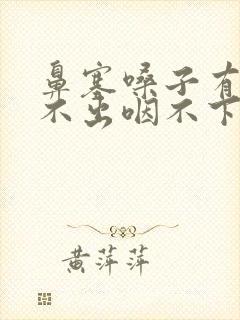 鼻塞嗓子有
不出咽不下
黄萍萍